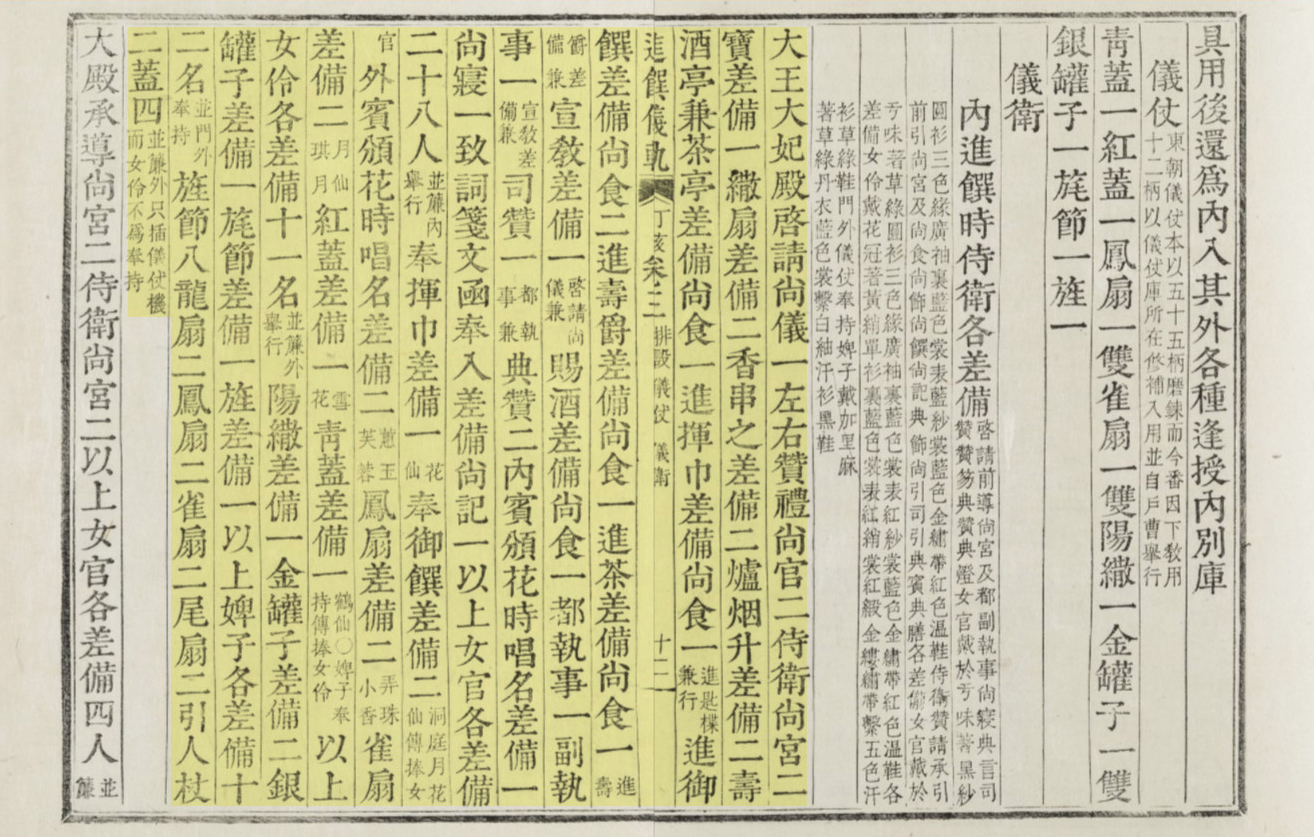 具用後還爲內入其外各種逢授內別庫
儀仗東朝儀仗本以五十五柄磨鍊而今番因下敎用
十二柄以儀仗庫所在修補入用並自戶曹擧行
靑蓋一紅蓋一鳳扇一雙雀扇一雙陽繖一金罐子一雙
銀罐子一旄節一旌一
儀衛
內進饌時侍衛各差備啓請前導尙宮及都副執事尙寢典言司
贊贊笏典贊典燈女官戴於亐味著黑紗
圓衫三色緣廣袖裏藍色裳表藍紗裳藍色金繡帶紅色溫鞋侍衛贊請承引
前引尙宮及尙食尙飾尙饌尙記典飾尙引司引典賓典膳各差備女官戴於
亐味著草綠圓衫三色緣廣袖裏藍色裳表紅紗裳藍色金繡帶紅色溫鞋各
差備女伶戴花冠著黃綃單衫裏藍色裳表紅綃裳紅緞金縷繡帶繫五色汗
衫草綠鞋門外儀仗奉持婢子戴加里麻
著草綠丹衣藍色裳繫白紬汗衫黑鞋
大王大妃殿啓請尙儀一左右贊禮尙官二侍衛尙宮二
寶差備一繖扇差備二香串之差備二爐烟升差備二壽
酒亭兼茶亭差備尙食一進揮巾差備尙食一進匙楪兼行進御
進饌儀軌 丁亥 卷二 排設 儀仗 儀衛 十二
饌差備尙食二進壽爵差備尙食一進茶差備尙食一進壽
爵差備兼宣敎差備一啓請尙儀兼賜酒差備尙食一都執事一副執
事一宣敎差備兼司贊一都執事兼典贊二內賓頒花時唱名差備一
尙寢一致詞箋文函奉入差備尙記一以上女官各差備
二十八人並簾內擧行奉揮巾差備一花仙奉御饌差備二洞庭月花仙傳捧女
官外賓頒花時唱名差備二蕙玉芙蓉鳳扇差備二弄珠小香雀扇
差備二月仙琪月紅蓋差備一雪花靑蓋差備一鶴仙○婢子奉持傳捧女伶以上
女伶各差備十一名並簾外擧行陽繖差備一金罐子差備二銀
罐子差備一旄節差備一旌差備一以上婢子各差備十
二名並門外奉持旌節八龍扇二鳳扇二雀扇二尾扇二引人杖
二蓋四並簾外只插儀仗機而女伶不爲奉持
大殿承導尙宮二侍衛尙宮二以上女官各差備四人並簾